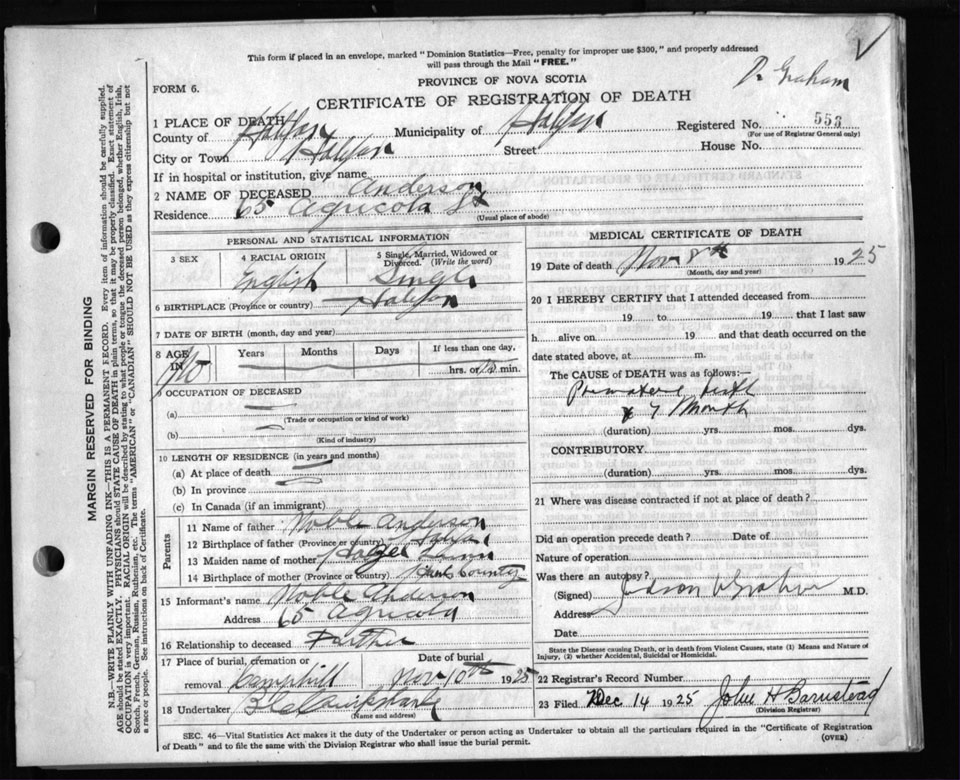 This form if placed in an envelope, marked "Dominion Statistics—Free, penalty for improper use $300," and properly addressed
will pass through the Mail "FREE."
Dr Graham
FORM 6.
PROVINCE OF NOVA SCOTIA
CERTIFICATE OF REGISTRATION OF DEATH
1 PLACE OF DEATH
County of Halifax Municipality of Halifax Registered No. 553
(For use of Registrar General only)
City or Town Halifax Street House No.
If in hospital or institution, give name
2 NAME OF DECEASED Anderson
Residence 65 Agricola St
(Usual place of abode)
PERSONAL AND STATISTICAL INFORMATION
3 SEX 4 RACIAL ORIGIN English 5 Single, Married, Widowed or Divorced. (Write the word) Single
6 BIRTHPLACE (Province or country) Halifax
7 DATE OF BIRTH (month, day and year)
8 AGE IN Years Months Days If less than one day,
hrs. or min.
9 OCCUPATION OF DECEASED
(a)
(Trade or occupation or kind of work)
(b)
(Kind of industry)
10 LENGTH OF RESIDENCE (in years and months)
(a) At place of death
(b) In province
(c) In Canada (if an immigrant)
Parents
11 Name of father Noble Anderson
12 Birthplace of father (Province or country)
13 Maiden name of mother
14 Birthplace of mother (Province or country) Hants County
15 Informant's name Noble Anderson
Address 65 Agricola
16 Relationship to deceased Father
17 Place of burial, cremation or removal Camphill Date of burial Nov 10th 1925
18 Undertaker
(Name and address)
MEDICAL CERTIFICATE OF DEATH
19 Date of death Nov 8th 1925
(Month, day and year)
20 I HEREBY CERTIFY that I attended deceased from
19 to 19 that I last saw
h alive on 19 and that death occurred on the
date stated above, at m.
The CAUSE OF DEATH was as follows:—
Premature birth
7 Month
(duration) yrs. mos. dys.
CONTRIBUTORY.
(duration) yrs. mos. dys.
21 Where was disease contracted if not at place of death?
Did an operation precede death? Date of
Nature of operation
Was there an autopsy?
(Signed) Judson V Graham M.D.
Address
Date
State the Disease causing Death, or in death from Violent Causes, state (1) Means and Nature of
Injury, (2) whether Accidental, Suicidal or Homicidal.
22 Registrar's Record Number
23 Filed Dec 14 1925 John H Barnstead
(Division Registrar)
SEC. 46—Vital Statistics Act makes it the duty of the Undertaker or person acting as Undertaker to obtain all the particulars required in the "Certificate of Registration
of Death" and to file the same with the Division Registrar who shall issue the burial permit.
(OVER)
MARGIN RESERVED FOR BINDING
N.B.—WRITE PLAINLY WITH UNFADING INK—THIS IS A PERMANENT RECORD. Every item of information should be carefully supplied.
AGE should be stated EXACTLY. PHYSICIANS should STATE CAUSE OF DEATH in plain terms, so that it may be properly classified. Exact statement of
OCCUPATION is very important. RACIAL ORIGIN will be described by stating to what people or tongue the deceased person belonged, whether English, Irish,
Scotch, French, German, Russian, Ruthenian, etc. The terms "AMERICAN" or "CANADIAN" SHOULD NOT BE USED as they express citizenship but not
a race or people. See instructions on back of Certificate.